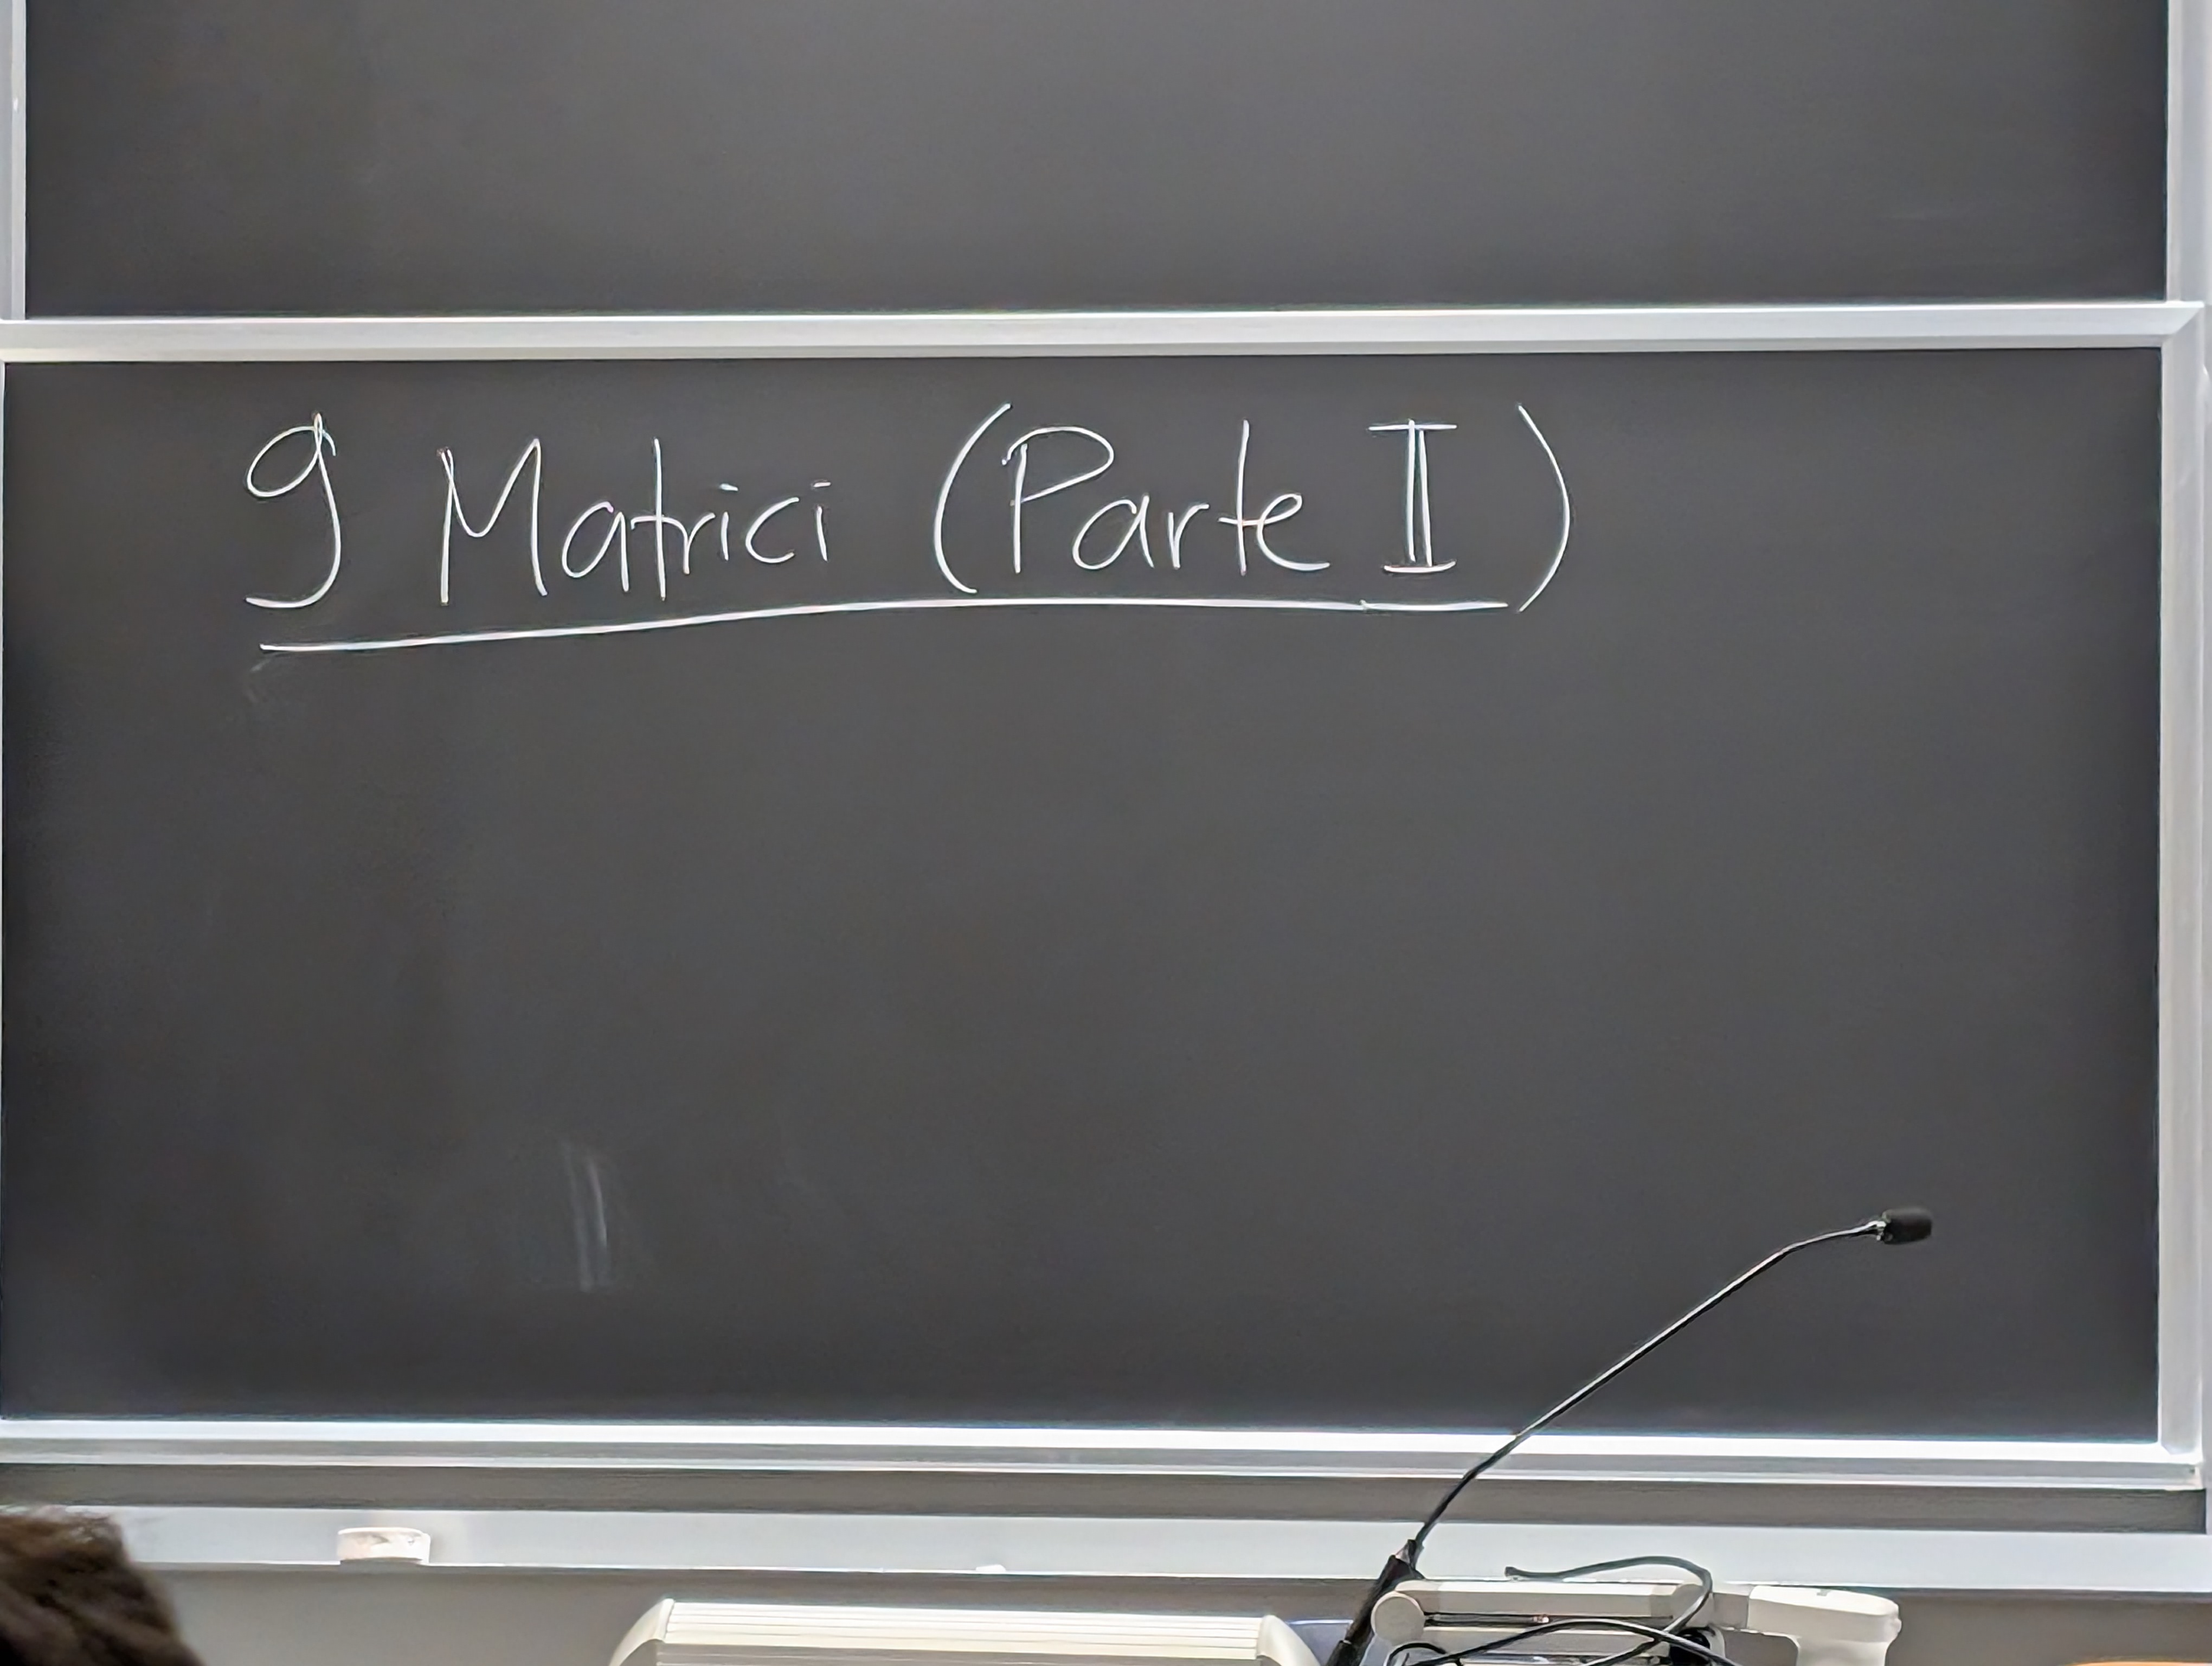 9 Matrici (Parte II)